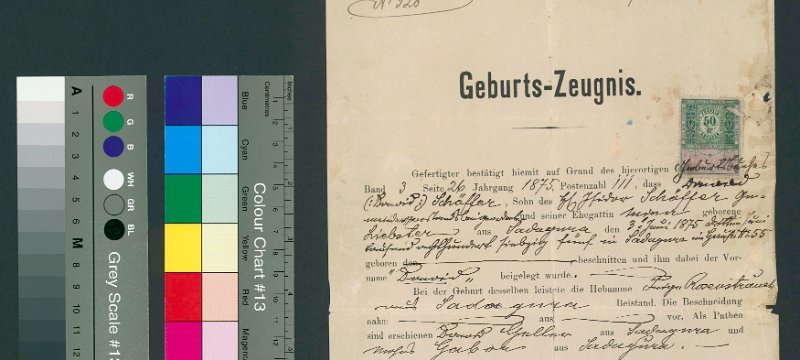 A 1 2 3 4 5 6 M 8 9 10 11 12
R G B WH GR BL
Grey Scale #13
Blue Cyan Green Yellow Red Magenta
Colour Chart #13
Centimetres Inches
No 320
Geburts-Zeugnis.
50
Gefertigter bestätigt hiemit auf Grund des hierortigen Geburtsbuches
Band 3 Seite 26 Jahrgang 1875, Postenzahl 111, dass
(: Dawid :) Schäffer, Sohn des H. Isidor Schäffer
und seiner Ehegattin geborene
Liebster aus Sadagura den 3. Juni 1875 dritten Juni
tausend achthundert siebzig fünf in Sadagura im Hause Nr. 55
geboren den beschnitten und ihm dabei der Vor-
nume "Dawid" beigelegt wurde.
Bei der Geburt desselben leistete die Hebamme Rosenstrauch
aus Sadagura Beistand. Die Beschneidung
nahm aus vor. Als Pathen
sind erschienen Geller aus Sadagura und
aus Sadagura.